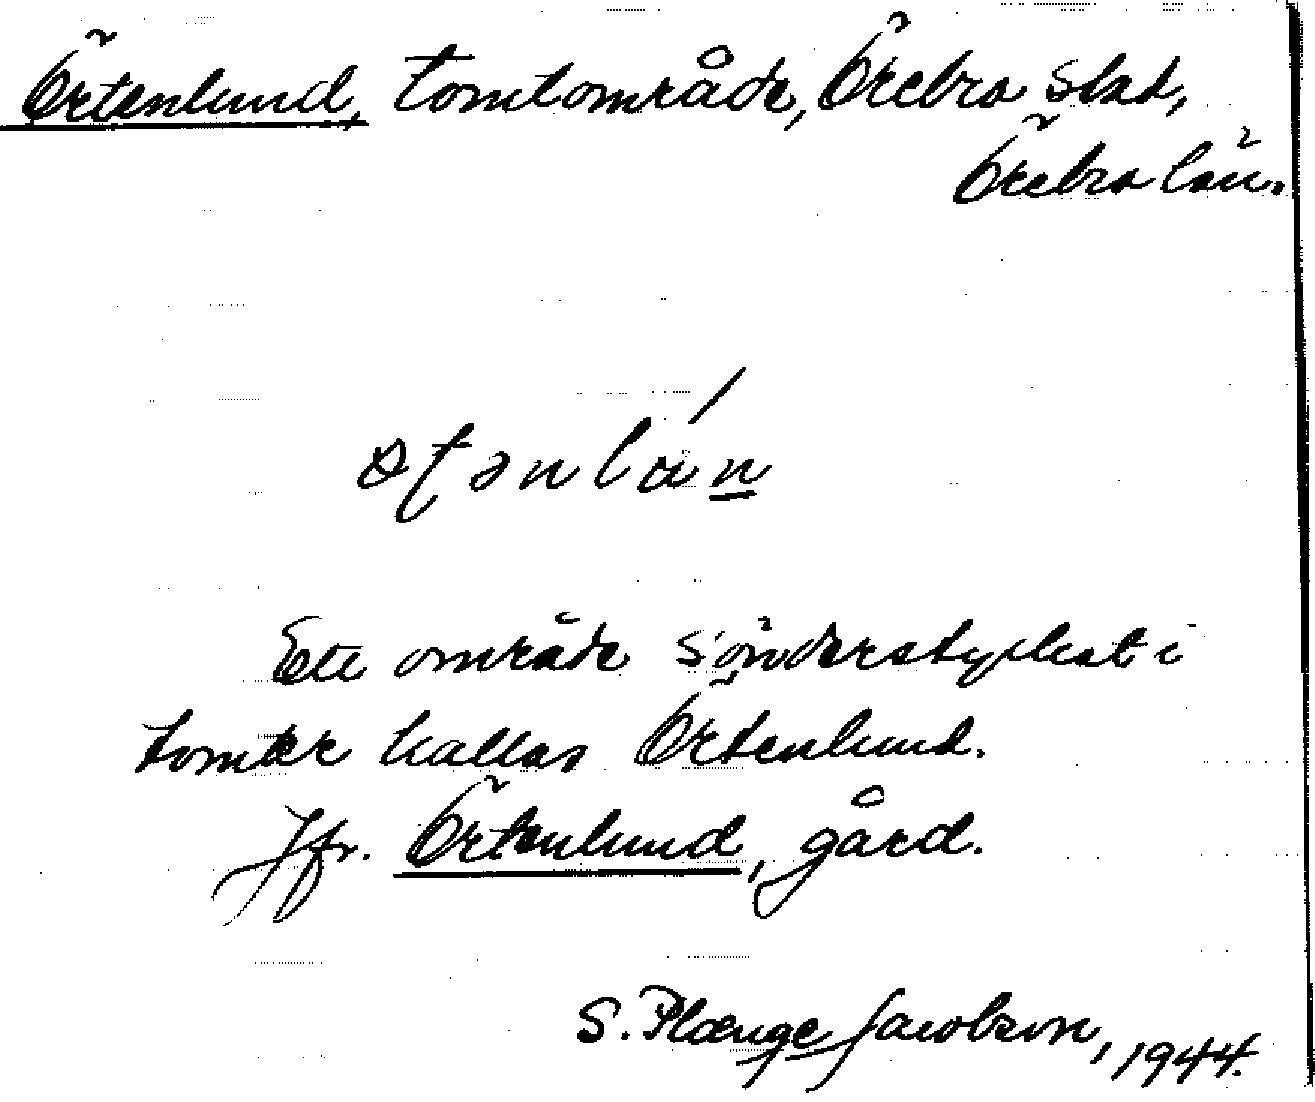 Örtenlund, tomtområde, Örebro stad,
Örebro län.
Ett område sönderstyckat i
tomter kallas Örtenlund.
Jfr. Örtenlund, gård.
S. Plænge Jacobson, 1944.